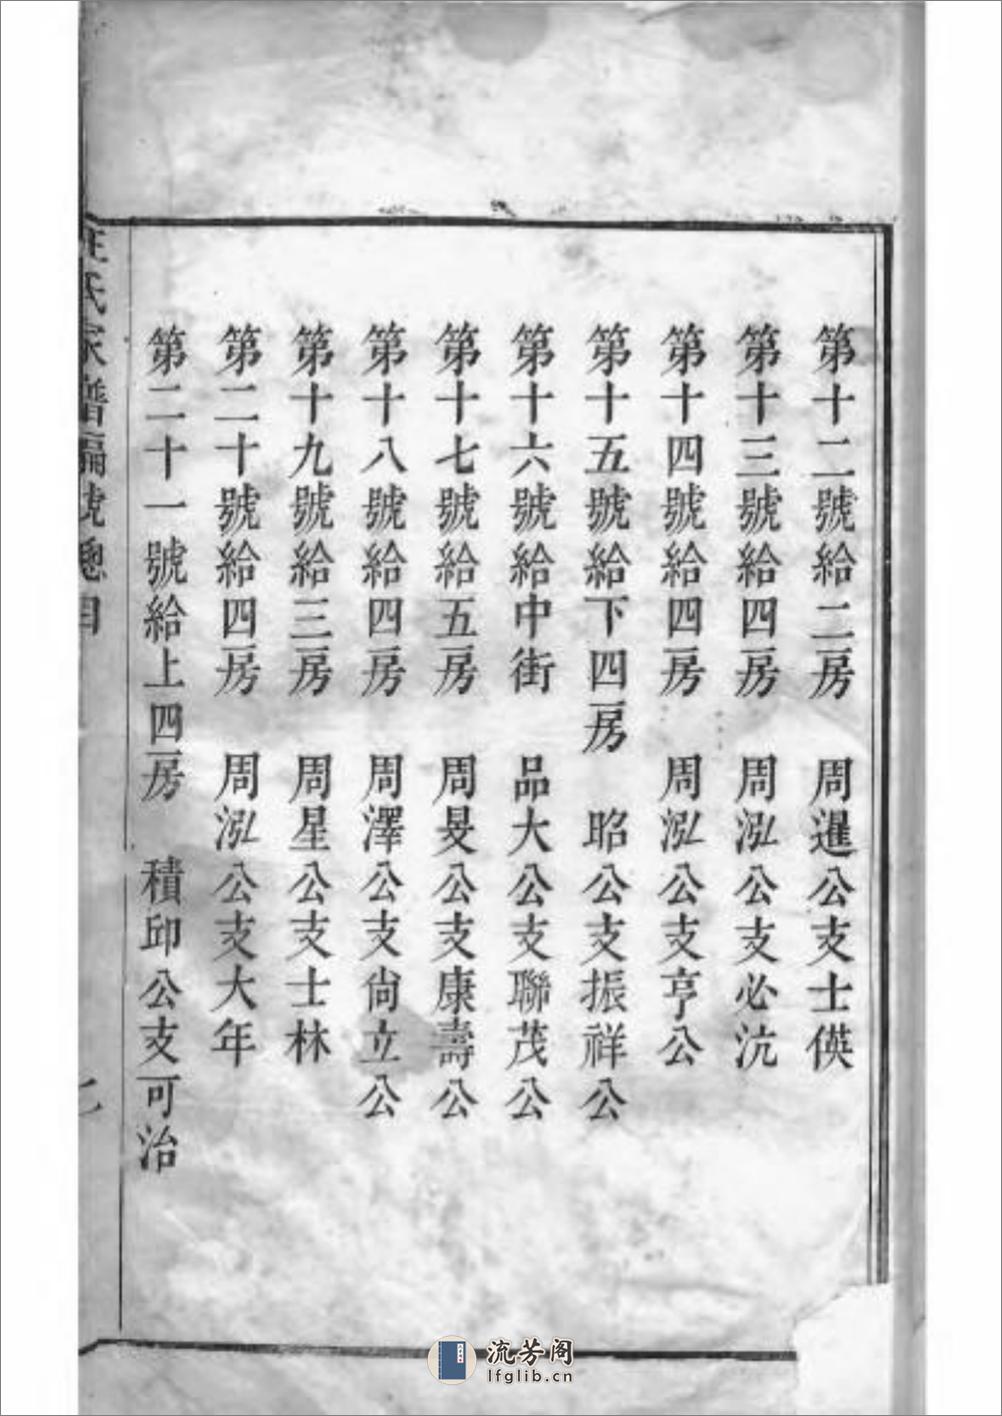 第十二號給二房　周暹公支士偀
第十三號給四房　周泓公支必沆
第十四號給四房　周泓公支亨公
第十五號給下四房　昭公支振祥公
第十六號給中街　品大公支聯茂公
第十七號給五房　周旻公支康壽公
第十八號給四房　周澤公支尙立公
第十九號給三房　周星公支士林
第二十號給四房　周泓公支大年
第二十一號給上四房　積邱公支可治
汪氏家譜編號總目
七
流芳阁
lfglib.cn